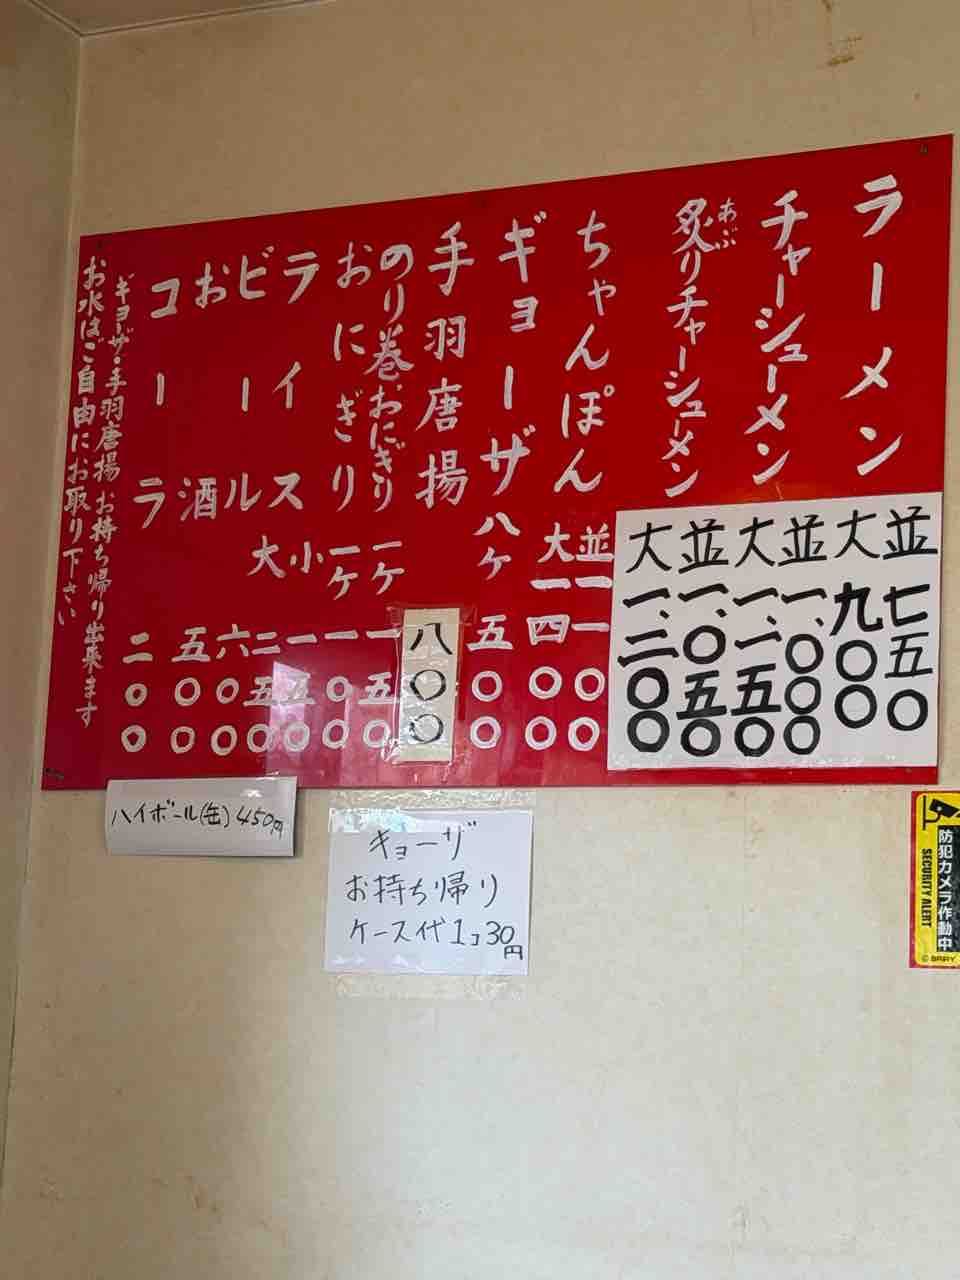 ラーメン 並 七五〇
大 九〇〇
チャーシューメン 並 一、〇〇〇
大 一、一五〇
炙りチャーシューメン 並 一、〇五〇
あぶ
大 一、二〇〇
ちゃんぽん 並 一一〇〇
大 一四〇〇
ギョーザ 八ヶ 五〇〇
手羽唐揚 八〇〇
のり巻おにぎり 一ヶ 一五〇
おにぎり 一ヶ 一〇〇
ライス 小 一五〇
大 二五〇
ビール 六〇〇
お酒 五〇〇
コーラ 二〇〇
ギョーザ・手羽唐揚 お持ち帰り出来ます
お水はご自由にお取り下さい
ハイボール(缶) 450円
キョーザ
お持ち帰り
ケース代1コ30円
防犯カメラ作動中
SECURITY ALERT